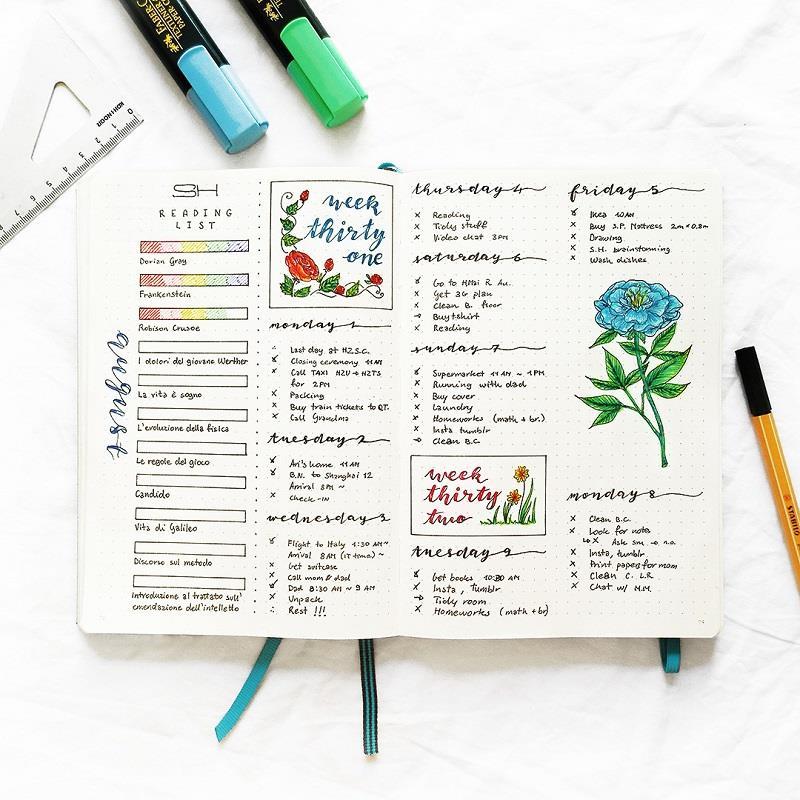 FABER-C
TEXTLINER
PAPER
FABER-CA
TEXTLINER
PAPER C
KOH-I-NOOR
0 1 2 3 4 5 6 7
august
SH
READING
LIST
Dorian Gray
Frankenstein
Robison Crusoe
I dolori del giovane Werther
La vita è sogno
L'evoluzione della fisica
Le regole del gioco
Candido
Vita di Galileo
Discorso sul metodo
Introduzione al trattato sull'
emendazione dell'intelletto
week
thirty
one
monday 1
Last day at HZ S.C.
Closing ceremony 11 AM
Call TAXI HZU → HZTS
for 2PM
Packing
Buy train tickets to QT.
Call Grandma
tuesday 2
Ari's home 11 AM
B.N. to Shanghai 12
Arrival 8PM ~
Check-IN
wednesday 3
Flight to Italy 1:30 AM~
Arrival 8AM (IT time) ~
Get suitcase
Call mom & dad
Dad 8:30 AM ~ 9 AM
Unpack
Rest !!!
thursday 4
Reading
Tidy stuff
Video chat 3PM
saturday 6
Go to R Au.
Get 3G plan
Clean B. floor
Buy tshirt
Reading
sunday 7
Supermarket 11 AM ~ 1 PM
Running with dad
Buy cover
Laundry
Homeworks (math + br.)
Insta tumblr
Clean B.C.
week
thirty
two
tuesday 9
Get books 10:30 AM
Insta, tumblr
Tidy room
Homeworks (math + br)
friday 5
Ikea 10 AM
Buy S.P. Mattress 2m × 0.8m
Drawing
S.H. brainstorming
Wash dishes
monday 8
Clean B.C.
Look for notes
Ask sm → n.a.
Insta, tumblr
Print papers for mom
Clean C. L.R.
Chat w/ M.M.
STABILO